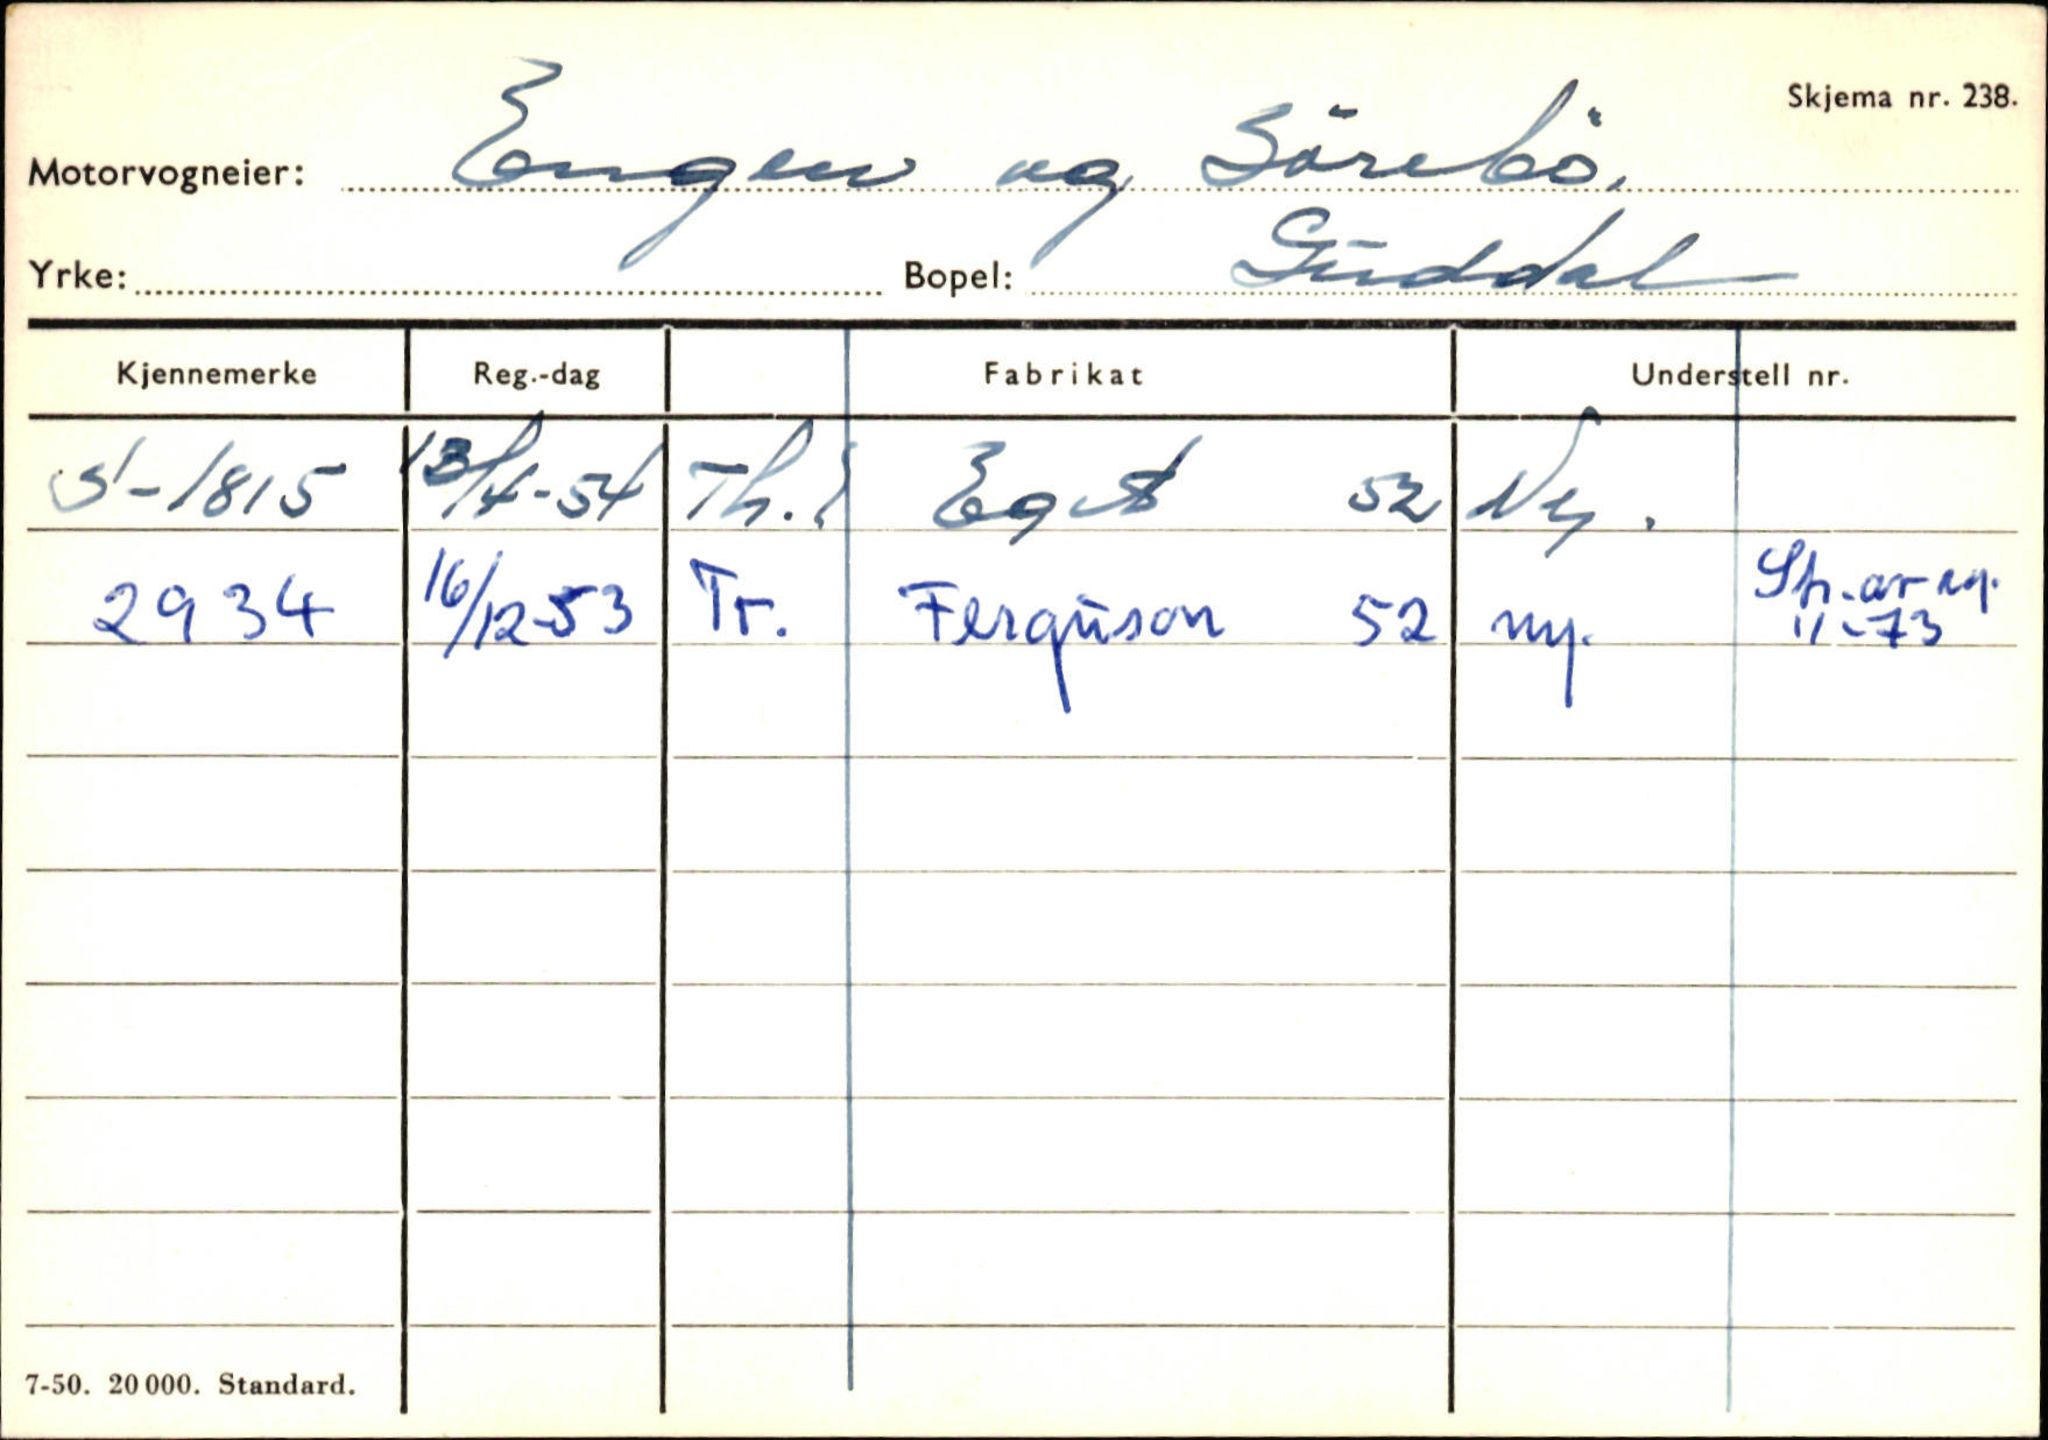 Skjema nr. 238.
Motorvogneier: Engen og Sörebö.
Yrke: Bopel: Guddal
Kjennemerke Reg.-dag Fabrikat Understell nr.
S-1815 13/4-54 Th. Eget 52 Ny.
2934 16/12-53 Tr. Ferguson 52 ny. Sp. av reg. 11-73
7-50. 20 000. Standard.